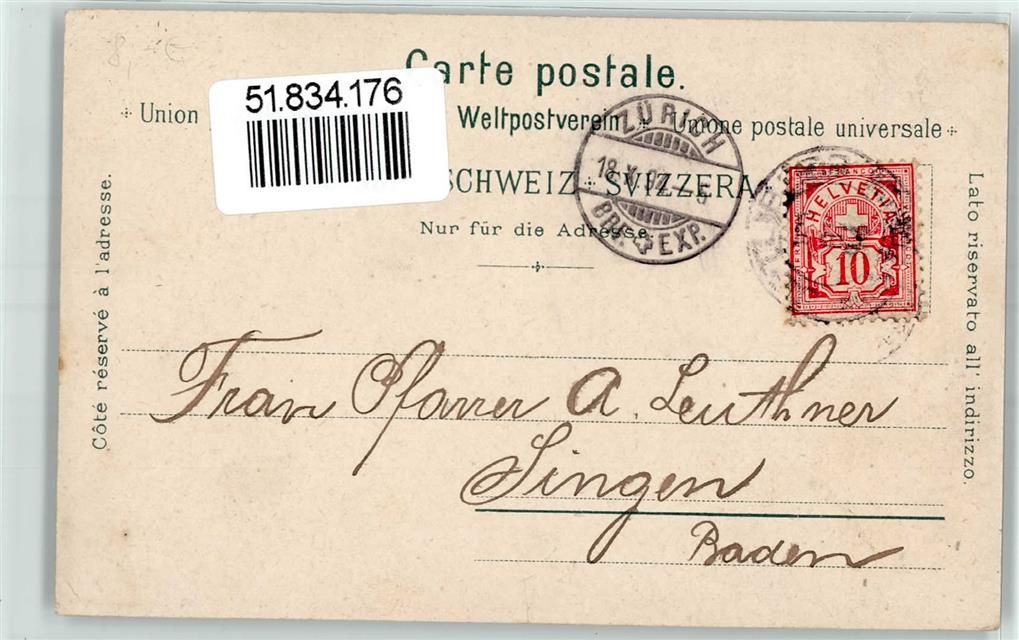 Carte postale.
51.834.176
Union Weltpostverein Unione postale universale
SCHWEIZ SVIZZERA
Nur für die Adresse
Côté réservé à l'adresse.
Lato riservato all' indirizzo.
ZÜRICH
18. X.
BRF. EXP.
FRANCO
HELVETIA
10
Frau Pfarrer A. Leuthner
Singen
Baden